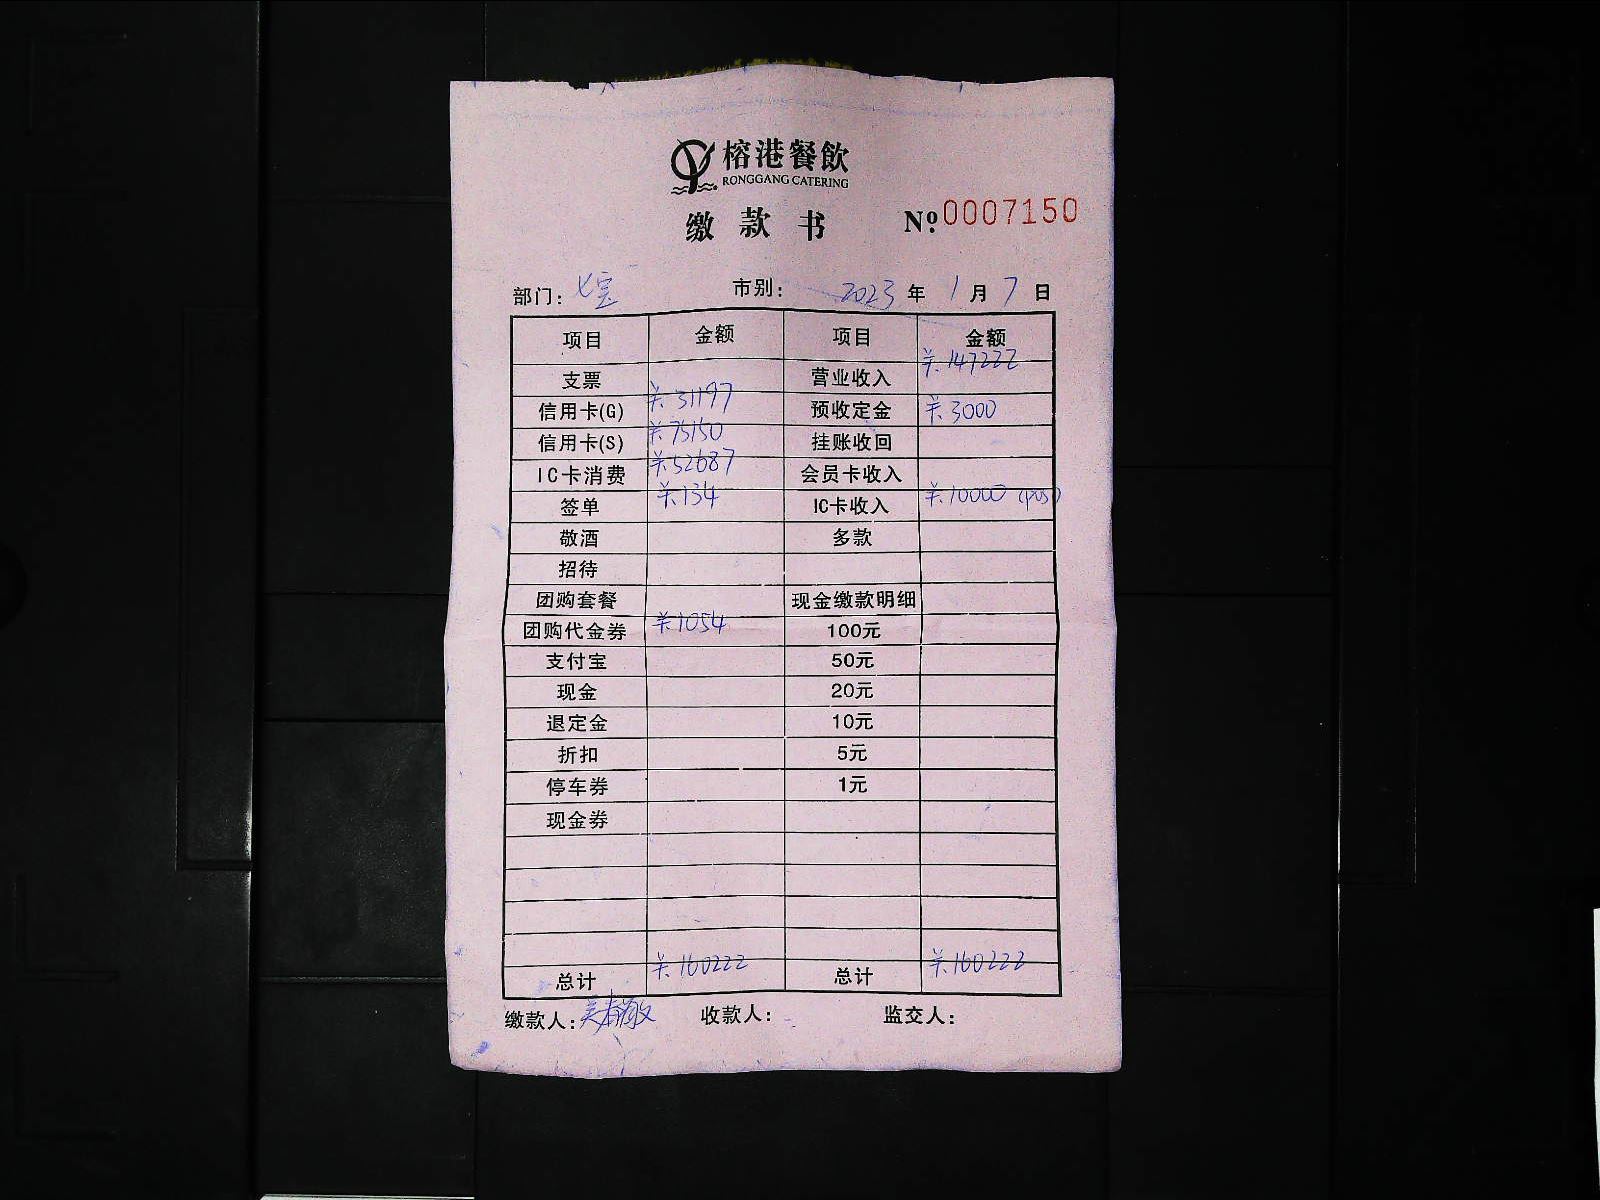 榕港餐飲
RONGGANG CATERING
缴款书 № 0007150
部门: 七宝 市别: 2023 年 1 月 7 日
项目 金额 项目 金额
支票 营业收入 ¥147222
信用卡(G) ¥31197 预收定金 ¥3000
信用卡(S) ¥75150 挂账收回
IC卡消费 ¥52687 会员卡收入
签单 ¥134 IC卡收入 ¥10000 (pos)
敬酒 多款
招待
团购套餐 现金缴款明细
团购代金券 ¥1054 100元
支付宝 50元
现金 20元
退定金 10元
折扣 5元
停车券 1元
现金券
总计 ¥160222 总计 ¥160222
缴款人: 收款人: 监交人: